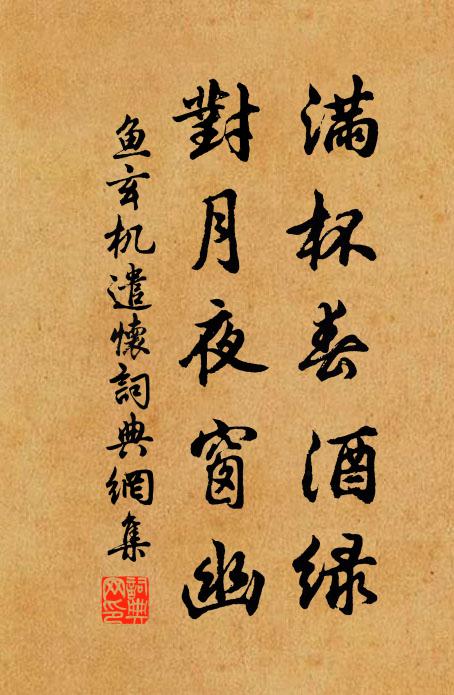 滿杯春酒绿
對月夜窗幽
鱼玄机遣懷詞典網集
詞典网印